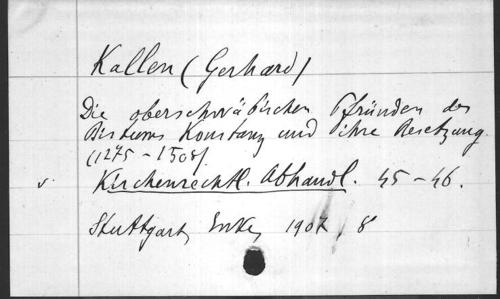 Kallen (Gerhard)
Die oberschwäbischen Pfründen des
Bistums Konstanz und ihre Besetzung.
(1275-1508).
v. Kirchenrechtl. Abhandl. 45-46.
Stuttgart, Enke, 1907, 8